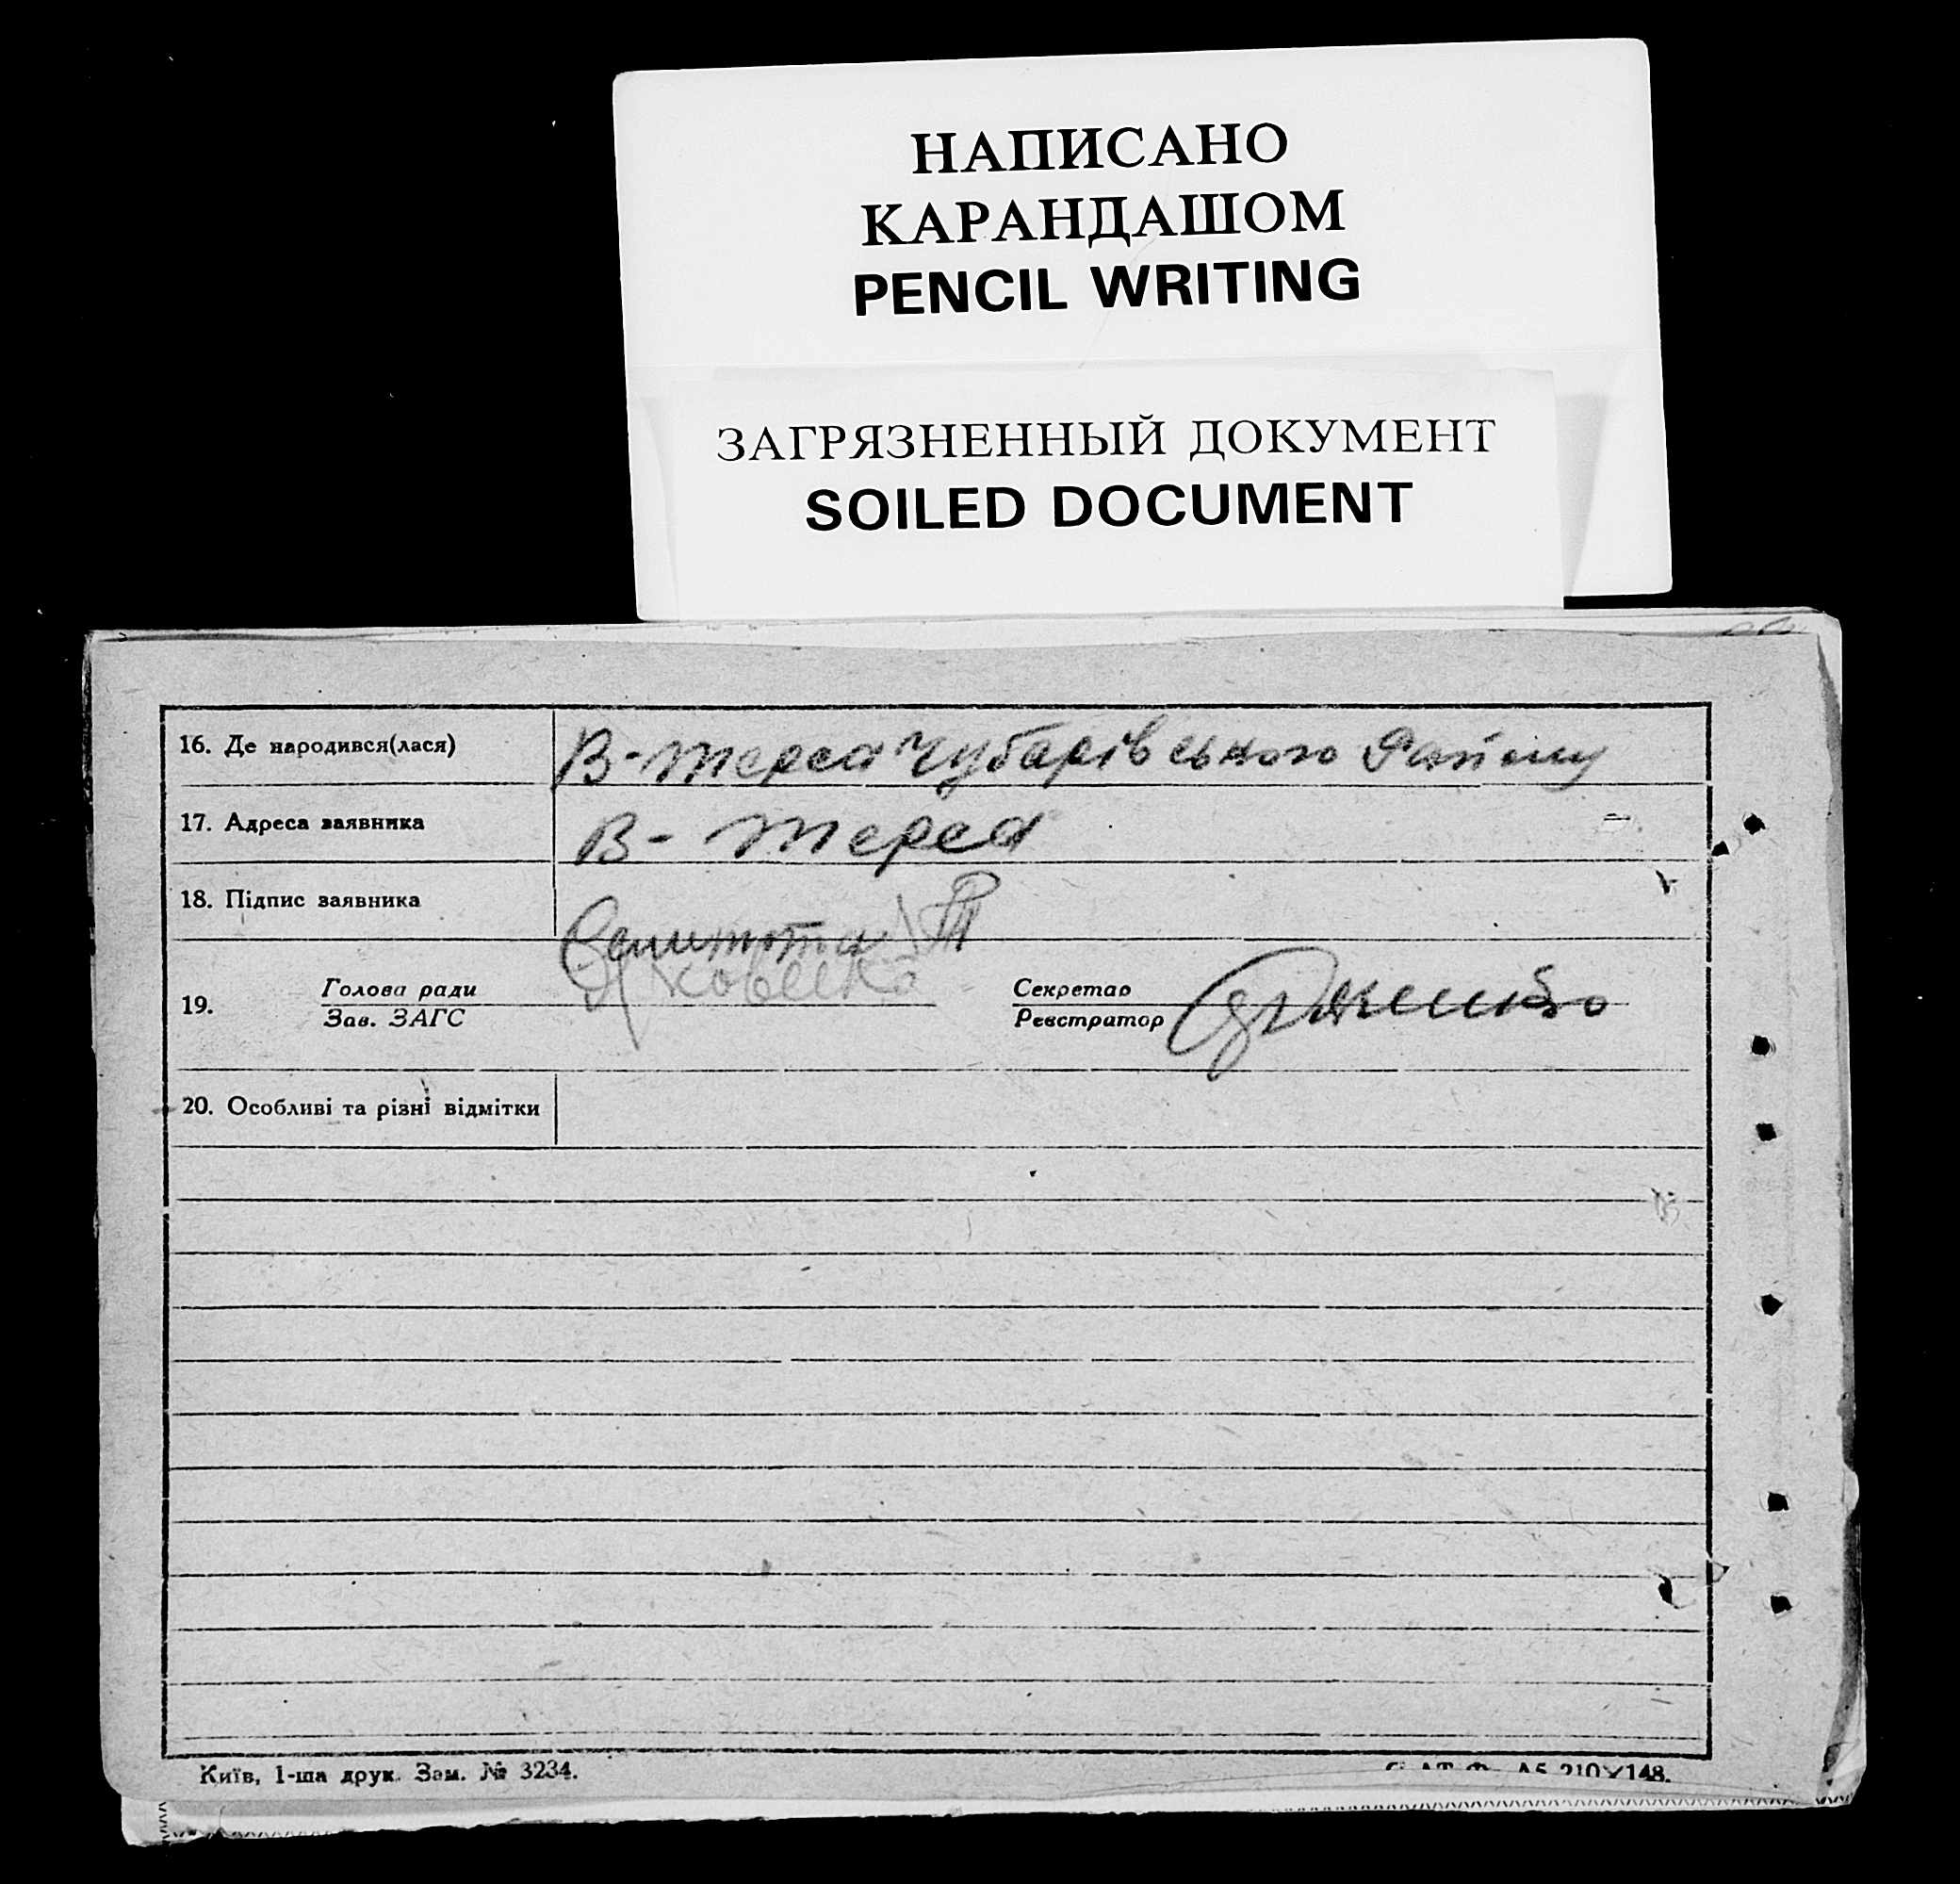 НАПИСАНО
КАРАНДАШОМ
PENCIL WRITING
ЗАГРЯЗНЕННЫЙ ДОКУМЕНТ
SOILED DOCUMENT
16. Де народився(лася) В-Терса Чубарівського Району
17. Адреса заявника В- Терса
18. Підпис заявника
19. Голова ради Секретар
Зав. ЗАГС Реєстратор
20. Особливі та різні відмітки
Київ, 1-ша друк. Зам. № 3234. А5 210×148.